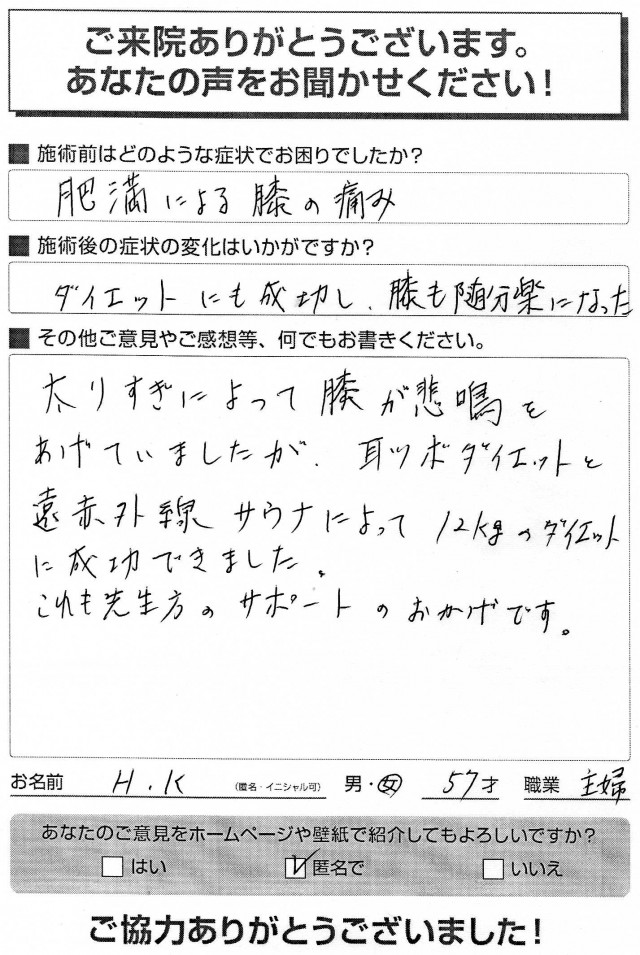 ご来院ありがとうございます。
あなたの声をお聞かせください！
■ 施術前はどのような症状でお困りでしたか？
肥満による膝の痛み
■ 施術後の症状の変化はいかがですか？
ダイエットにも成功し、膝も随分楽になった
■ その他ご意見やご感想等、何でもお書きください。
太りすぎによって膝が悲鳴を
あげていましたが、耳ツボダイエットと
遠赤外線サウナによって12kgのダイエット
に成功できました。
これも先生方のサポートのおかげです。
お名前 H.K （匿名・イニシャル可） 男・女 57才 職業 主婦
あなたのご意見をホームページや壁紙で紹介してもよろしいですか？
□ はい ☑ 匿名で □ いいえ
ご協力ありがとうございました！